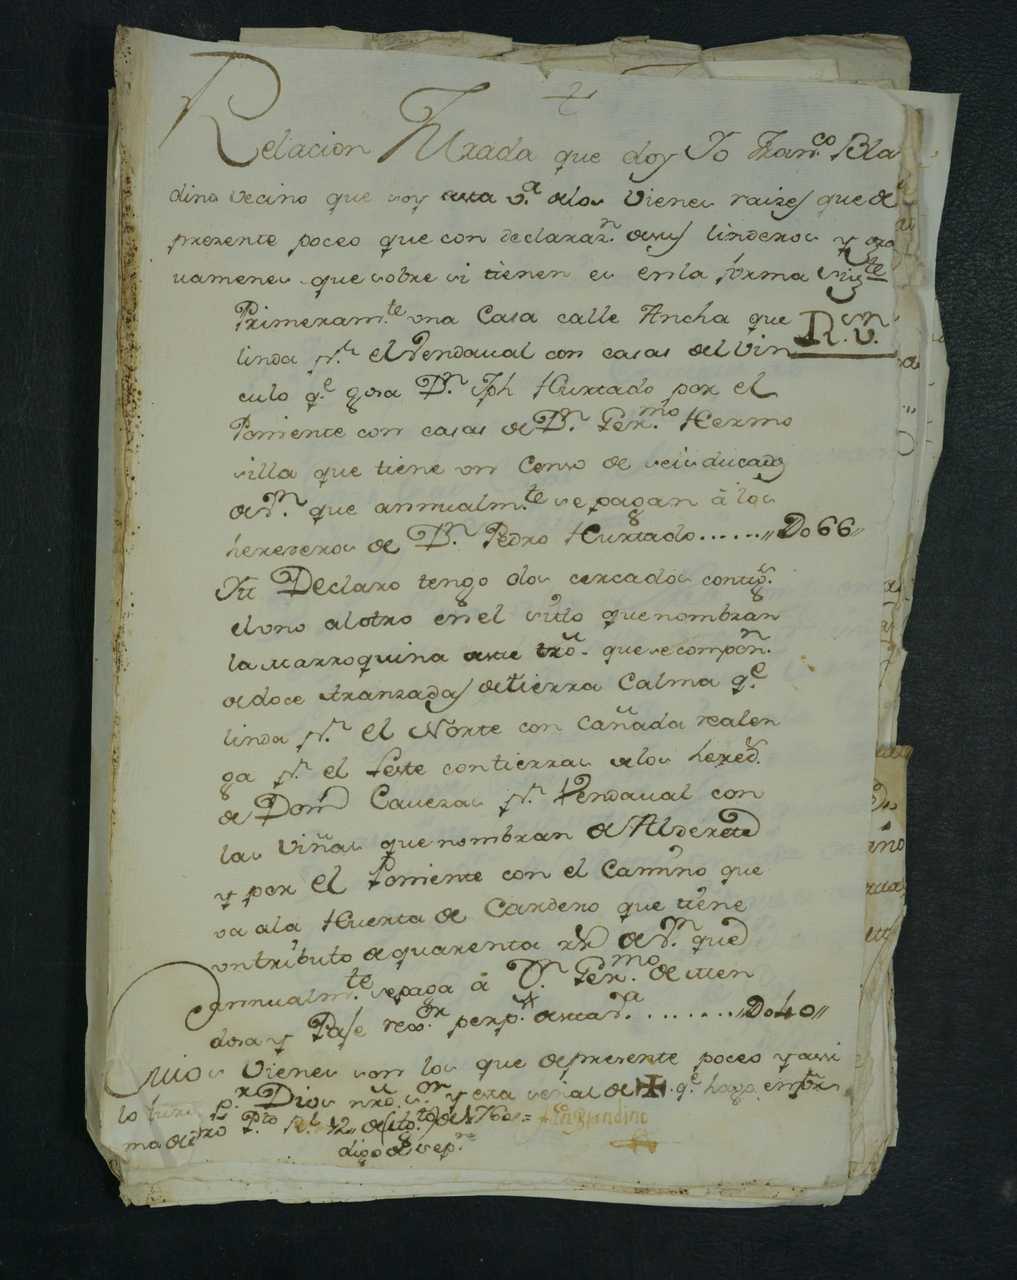 Relacion Jurada que doy Yo Fran.co Bla
dino vecino que soy desta v.a de los Vienes raizes que de
presente poceo que con declaraz.n de sus linderos y gra
vamenes que sobre si tienen es en la forma sig.te
Primeram.te una Casa calle Ancha que R.s v.n
linda p.r el Vendaval con casas del Vin
culo q.e goza D.n Jph Hurtado por el
Poniente con casas de D.n Ger.mo Hermo
silla que tiene un Censo de seis ducados
de v.n que annualm.te se pagan â los
herederos de D.n Pedro Hurtado ...... Do66
Yt Declaro tengo dos cercados contig.s
el uno al otro en el sitio que nombran
la Marroquina deste tr.o que se compon.n
de doce Aranzadas de tierra Calma q.e
linda p.r el Norte con Cañada realen
ga p.r el Leste con tierras de los hered.s
de Dom.o Caveza p.r Vendaval con
las viñas que nombran de Alderete
y por el Poniente con el Camino que
va a la Huerta de Cardeno que tiene
un tributo de quarenta rs de v.n que
annualm.te se paga â D.n Ger.mo de Men
doza y Pase reg.or perp.o desta v.a ........ Do40
Cuios Vienes son los que de presente poceo y assi
lo juro p.r Dios nro s.or y esta señal de ✠ q.e hago en for
ma de dro P.to R.l 12 de Ag.to de 1760=
digo de sep.re